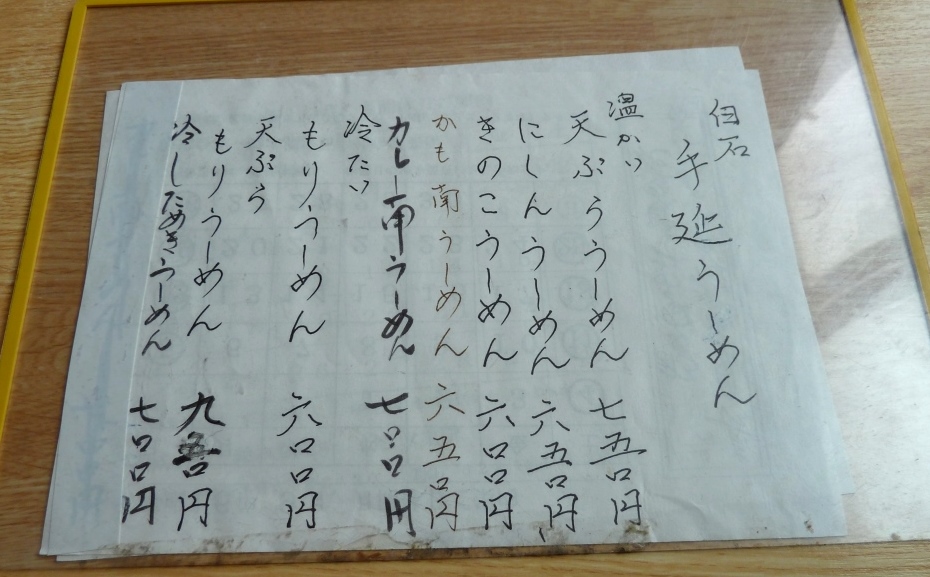 白石
手延うーめん
温かい
天ぷらうーめん 七五〇円
にしんうーめん 六五〇円
きのこうーめん 六〇〇円
かも南うーめん 六五〇円
カレー南うーめん 七〇〇円
冷たい
もりうーめん 六〇〇円
天ぷら
もりうーめん 九五〇円
冷したぬきうーめん 七〇〇円